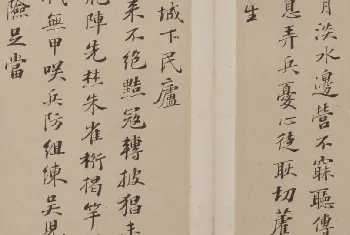 月淡水邊營不寐聽傳
息弄兵憂心徒耿切藿
生
城下民廬
来不絕黠寇轉披猖未
能陣先焚朱雀桁揭竿
代無甲咲兵防組練吳児
險足當